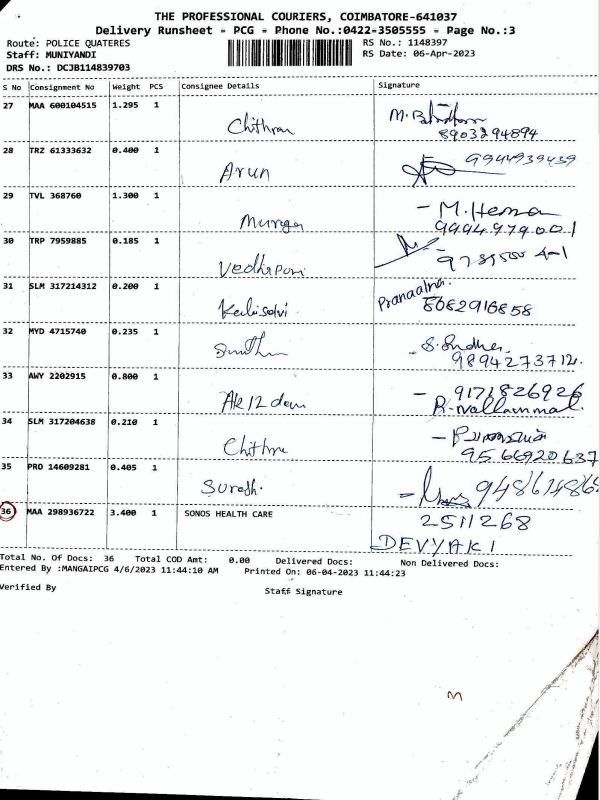 THE PROFESSIONAL COURIERS, COIMBATORE-641037
Delivery Runsheet - PCG - Phone No.:0422-3505555 - Page No.:3
Route: POLICE QUATERES RS No.: 1148397
Staff: MUNIYANDI RS Date: 06-Apr-2023
DRS No.: DCJB114839703
S No Consignment No Weight PCS Consignee Details Signature
27 MAA 600104515 1.295 1
Chithran 8903294894
28 TRZ 61333632 0.400 1 9944939439
Arun
29 TVL 368760 1.300 1 M.Hema
Muruga 9994979001
30 TRP 7959885 0.185 1
31 SLM 317214312 0.200 1
8682916858
32 MYD 4715740 0.235 1
9894273712.
33 AWY 2202915 0.800 1 9171826926
R.Nallammal.
34 SLM 317204638 0.210 1
9566920637
35 PRO 14609281 0.405 1
Suresh.
36 MAA 298936722 3.400 1 SONOS HEALTH CARE 2511268
DEVYAKI
Total No. Of Docs: 36 Total COD Amt: 0.00 Delivered Docs: Non Delivered Docs:
Entered By :MANGAIPCG 4/6/2023 11:44:10 AM Printed On: 06-04-2023 11:44:23
Verified By Staff Signature